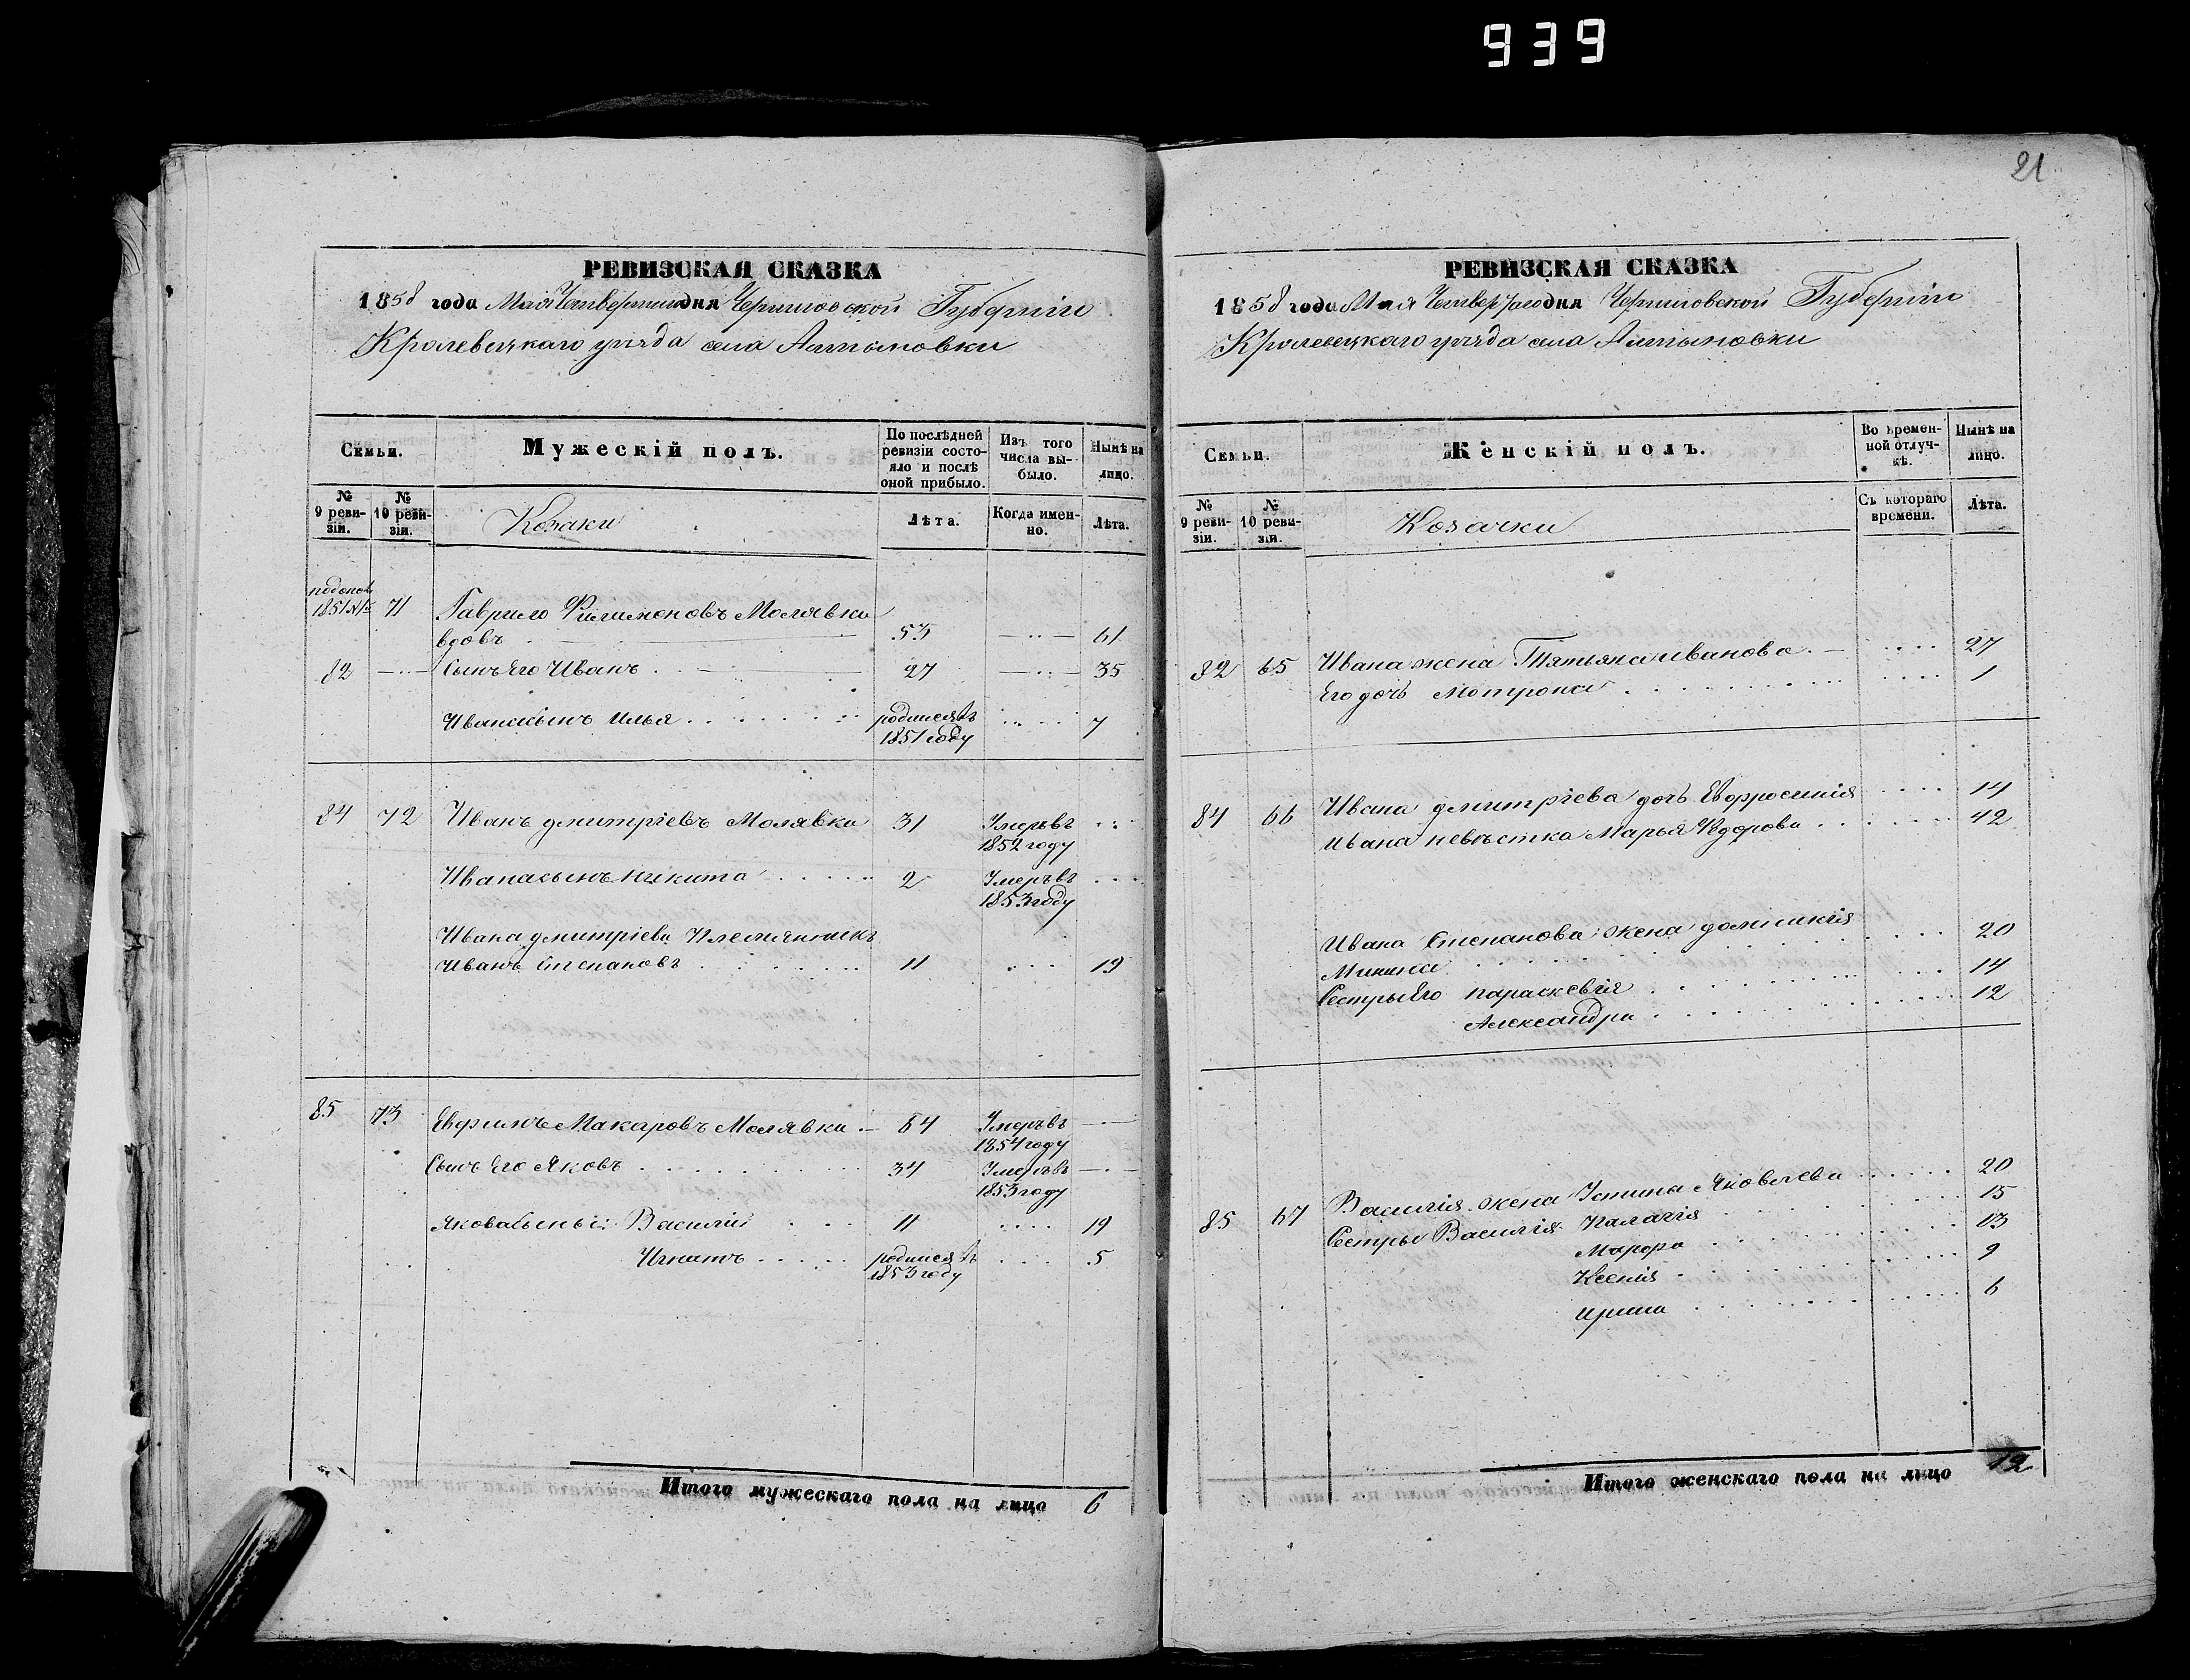 939
21
РЕВИЗСКАЯ СКАЗКА
1858 года Мая Четвертого дня Черниговской Губерніи
Кролевецкаго уѣзда села Алтыновки
Семьи.
Мужескій полъ.
По послѣдней ревизіи состояло и послѣ оной прибыло.
Изъ того числа выбыло.
Нынѣ на лицо.
№ 9 ревизіи.
№ 10 ревизіи.
Козаки
Лѣта.
Когда именно.
Лѣта.
1851 71 Гаврило Филимоновъ Молявка
вдовъ 53 61
82 Сынъ Его Иванъ 27 35
Ивана сынъ Илья родился въ 7
1851 году
84 72 Иванъ дмитріевъ Молявка 31 Умеръ въ
1852 году
Ивана сынъ Никита 2 Умеръ въ
1853 году
Ивана дмитріева Племянникъ
Иванъ Степановъ 11 19
85 73 Евфимъ Макаровъ Молявка 64 Умеръ въ
1854 году
Сынъ Его Яковъ 34 Умеръ въ
1853 году
Якова сыны: Василій 11 19
Игнатъ родился въ 5
1853 году
Итого мужескаго пола на лицо 6
РЕВИЗСКАЯ СКАЗКА
1858 года Мая Четвертого дня Черниговской Губерніи
Кролевецкаго уѣзда села Алтыновки
Семьи.
Женскій полъ.
Во временной отлучкѣ.
Нынѣ на лицо.
№ 9 ревизіи.
№ 10 ревизіи.
Козачки
Съ котораго времени.
Лѣта.
82 65 Ивана жена Татьяна иванова 27
Его дочь мотрона 1
84 66 Ивана дмитріева дочь Евфросинія 14
Ивана невѣстка Марья Федорова 42
Ивана Степанова жена домникія
20
Сестры Его параскевія 14
Александра 12
85 67 Василія жена Устина Яковлева 20
Сестры Василія Палагія 15
Марфа 13
Ксенія 9
ирина 6
Итого женскаго пола на лицо 12